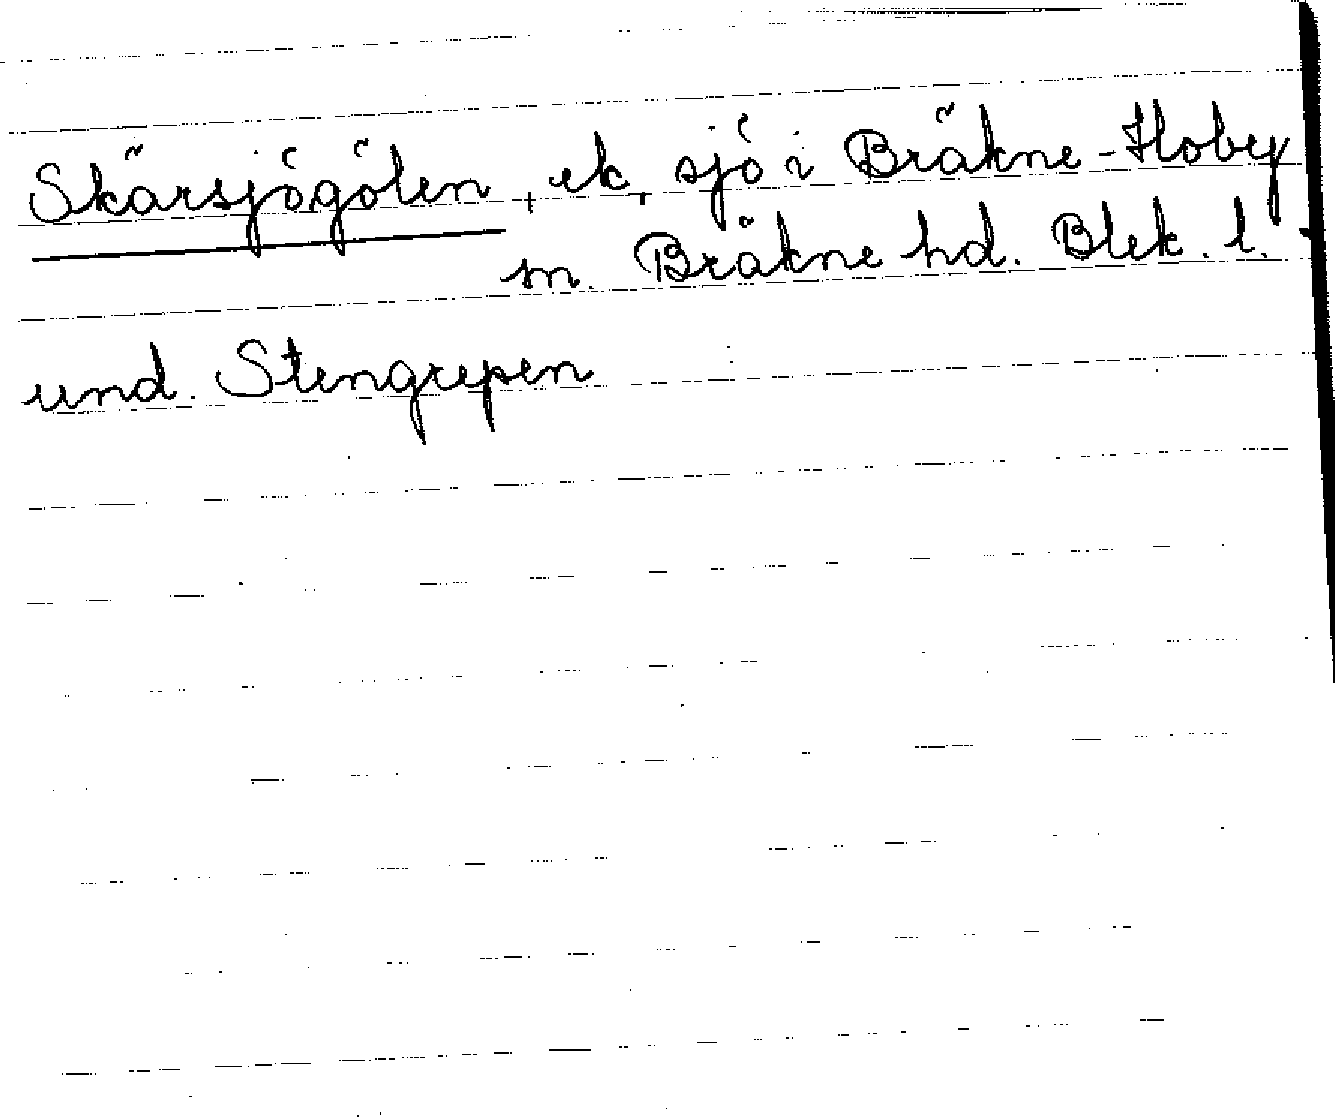 Skärsjögölen, ek, sjö i Bräkne-Hoby
sn. Bräkne hd. Blek. l.
und. Stengrepen